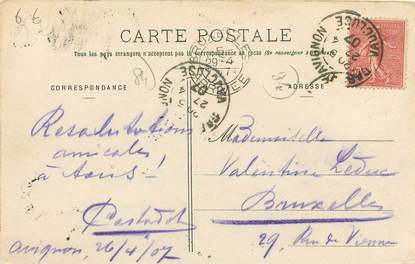 6 €
CARTE POSTALE
Tous les pays étrangers n'acceptent pas la correspondance au recto (Se renseigner à
CORRESPONDANCE
ADRESSE
84
AVIGNON
VAUCLUSE
AVIGNON
VAUCLUSE
Mademoiselle
Valentine Leduc
Bruxelles
29, Rue de
amicales
à tous!
Avignon, 26/4/07